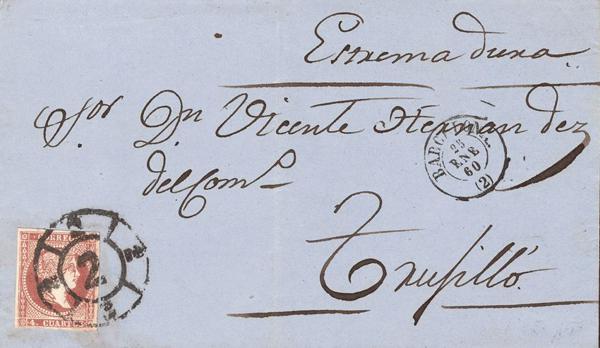 Estremadura
Sor Dn Vicente Hernandez
del Come
Trujillo
BARCELONA
25
ENE
60
(2)
CORREOS
2
4. CUARTOS